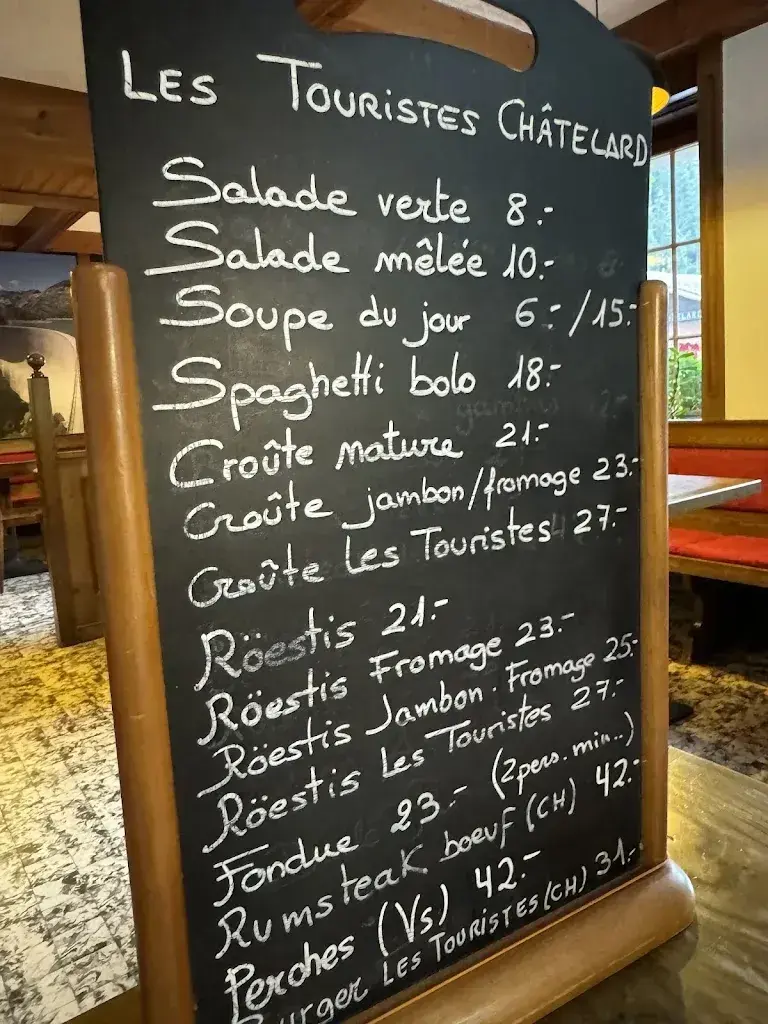 LES TOURISTES CHÂTELARD
Salade verte 8.-
Salade mêlée 10.-
Soupe du jour 6.-/15.-
Spaghetti bolo 18.-
Croûte nature 21.-
Croûte jambon/fromage 23.-
Croûte Les Touristes 27.-
Röestis 21.-
Röestis Fromage 23.-
Röestis Jambon.Fromage 25.-
Röestis Les Touristes 27.-
Fondue 23.- (2pers.min..)
Rumsteak boeuf (CH) 42.-
Perches (Vs) 42.-
Burger LES TOURISTES (CH) 31.-